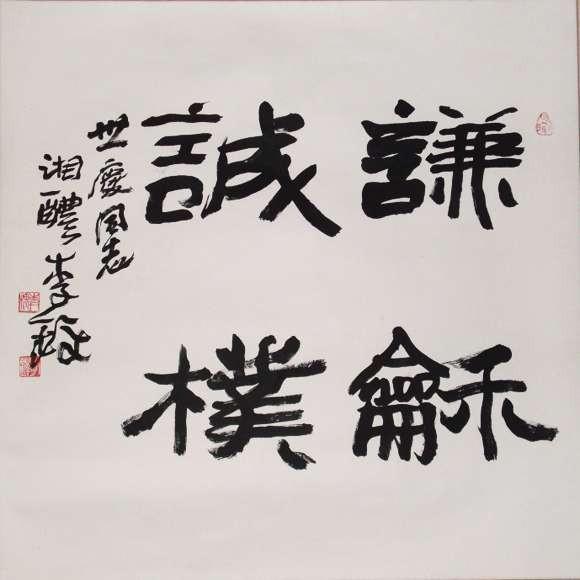 謙龢
誠樸
世慶同志
湘醴李鐸